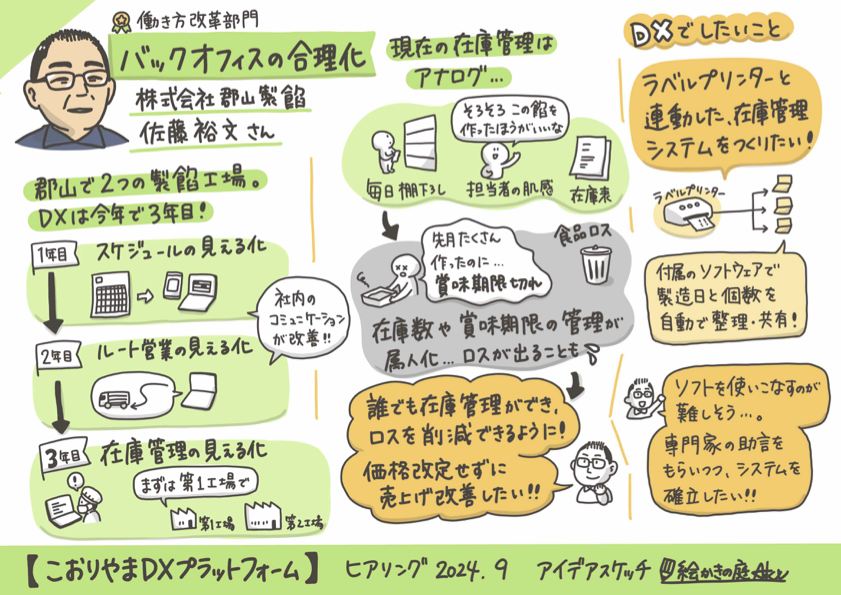 働き方改革部門
バックオフィスの合理化
株式会社 郡山製餡
佐藤裕文さん
郡山で2つの製餡工場。
DXは今年で3年目!
1年目
スケジュールの見える化
社内の
コミュニケーション
が改善!!
2年目
ルート営業の見える化
3年目
在庫管理の見える化
まずは第1工場で
第1工場
第2工場
現在の在庫管理は
アナログ…
そろそろこの餡を
作ったほうがいいな
毎日棚下ろし
担当者の肌感
在庫表
先月たくさん
作ったのに…
賞味期限切れ
食品ロス
在庫数や賞味期限の管理が
属人化…ロスが出ることも
誰でも在庫管理ができ、
ロスを削減できるように!
価格改定せずに
売上げ改善したい!!
DXでしたいこと
ラベルプリンターと
連動した、在庫管理
システムをつくりたい!
ラベルプリンター
付属のソフトウェアで
製造日と個数を
自動で整理・共有!
ソフトを使いこなすのが
難しそう…。
専門家の助言を
もらいつつ、システムを
確立したい!!
【こおりやまDXプラットフォーム】
ヒアリング 2024.9
アイデアスケッチ
絵かきの庭